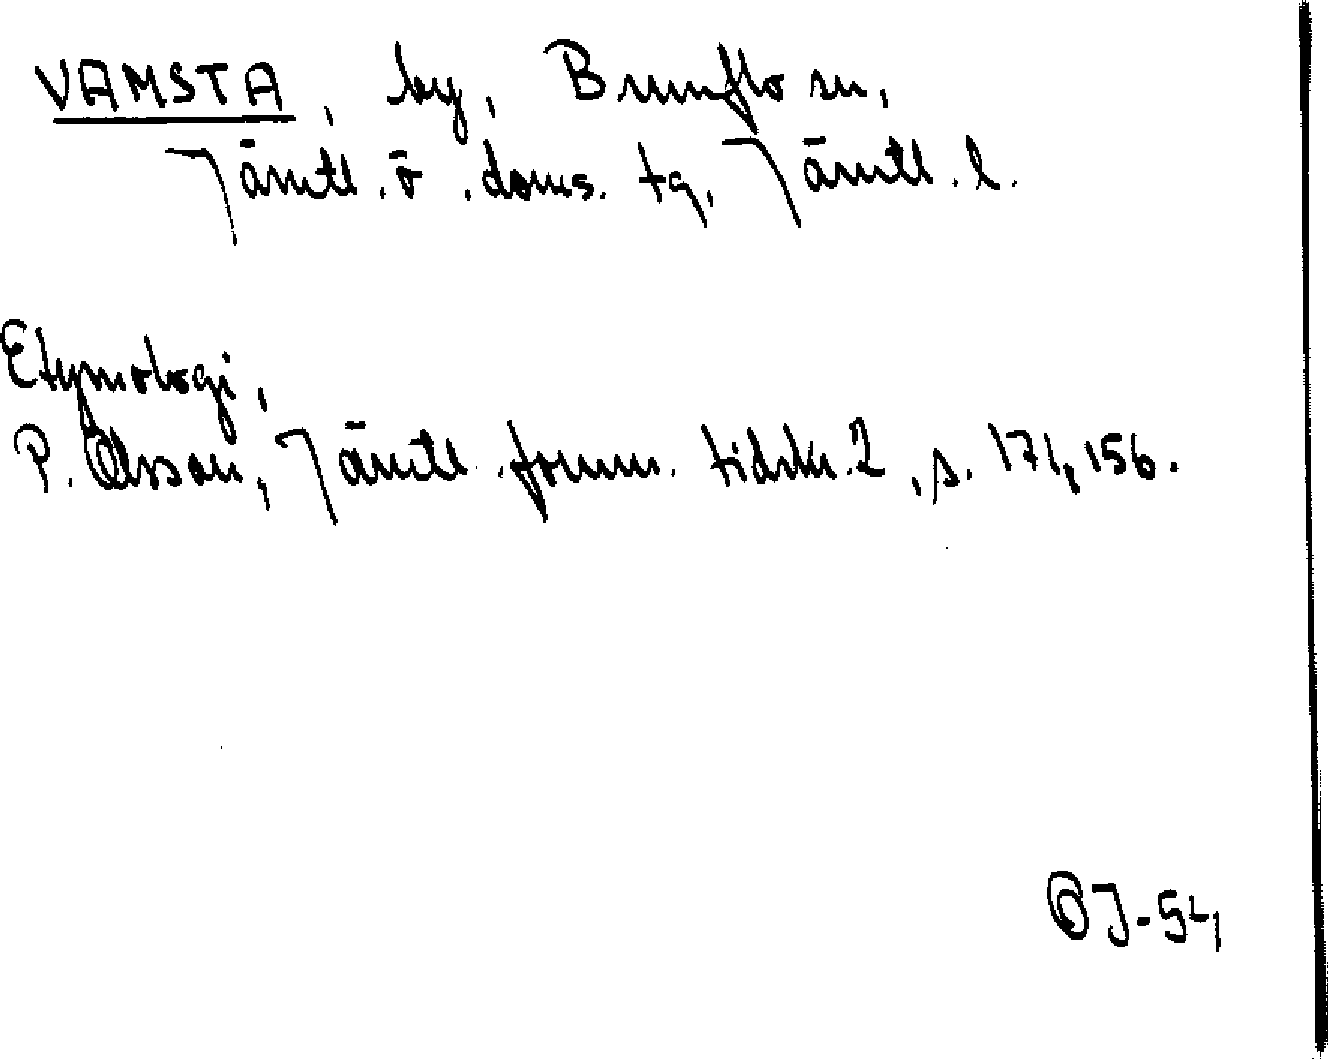 VAMSTA, by, Brunflo sn,
Jämtl. ö. doms. tg, Jämtl. l.
Etymologi,
P. Olsson, Jämtl. fornm. tidskr. 2, s. 171, 156.
OJ-54